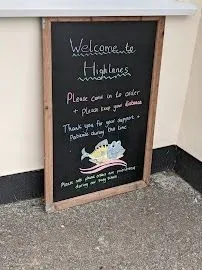 Welcome to
Highlanes
Please come in to order
+ please keep your distance
Thank you for your support +
Patience during this time
Please